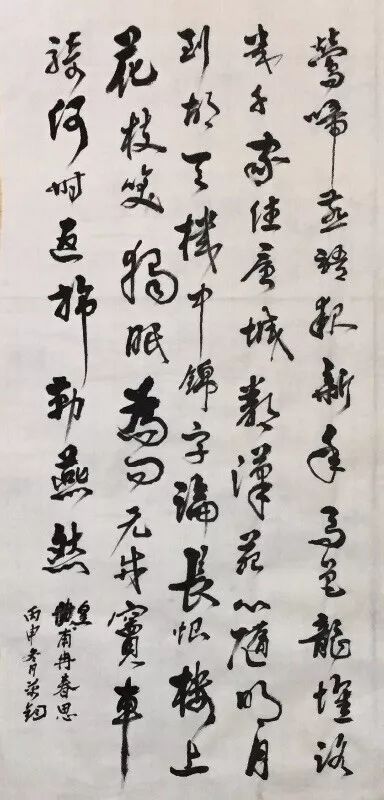 鶯啼燕語報新年馬邑龍堆路
幾千家住層城鄰漢苑心隨明月
到胡天機中錦字論長恨樓上
花枝笑獨眠為問元戎竇車
騎何時返旆勒燕然
皇甫冉春思
丙申冬月